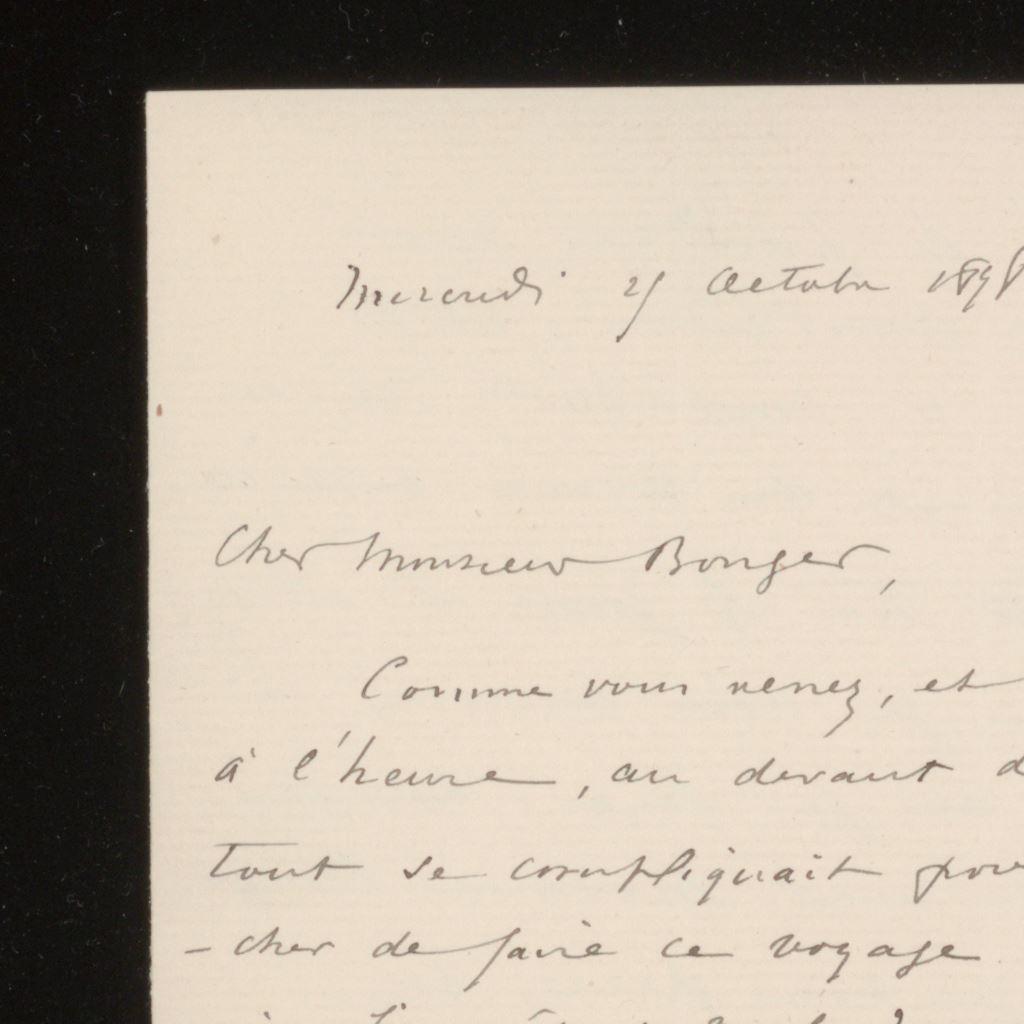 Mercredi Octobre
Cher Monsieur Bonger,
Comme vous venez, et
à l'heure, au devant
tout se compliquait
- cher de faire ce voyage